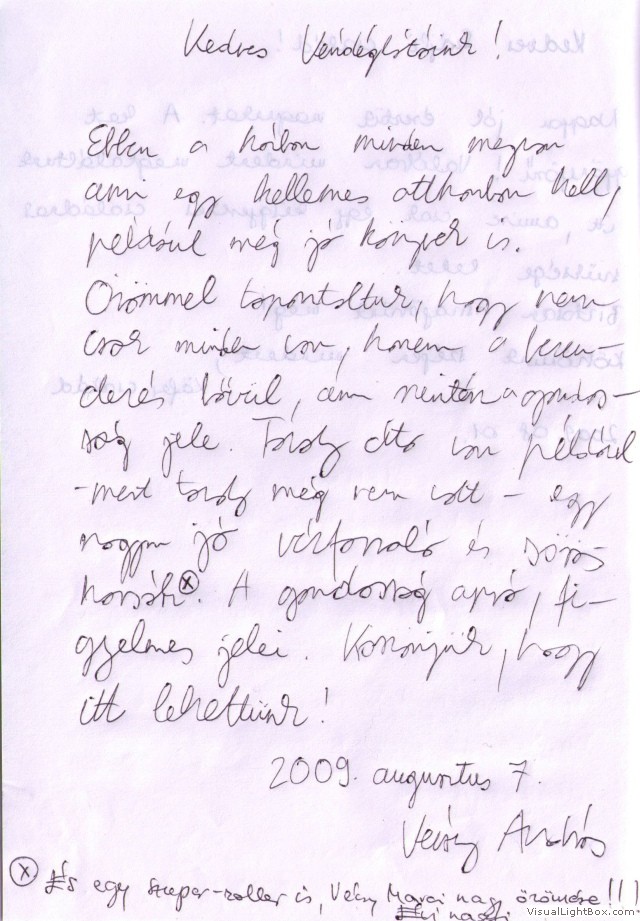 Kedves Vendéglátóink!
Ebben a házban minden megvan
ami egy kellemes otthonban kell,
például még jó könyvek is.
Örömmel tapasztaltuk, hogy nem
csak minden van, hanem a
is bővül, ami szintén a gondos-
ság jele. Tavaly óta van például
- mert tavaly még nem volt - egy
nagyon jó vízforraló és
. A gondosság apró, fi-
gyelmes jelei. Köszönjük, hogy
itt lehettünk!
2009. augusztus 7.
András
(x) És egy szuper-roller is, Marci nagy örömére!!!
VisualLightBox.com